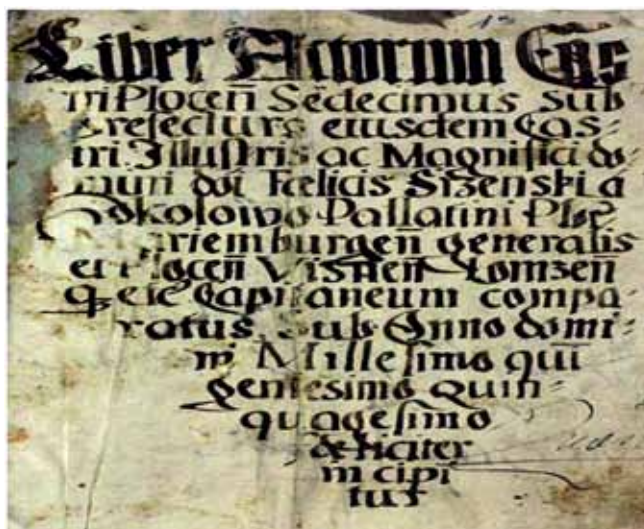 Liber Actorum Cas
tri Plocen̄ Sedecimus sub
prefectura eiusdem Cas-
tri. Illustris ac Magnifici do-
mini doī Fœlicis Srzenski a
Sokolowo Pallatini Ploc
Mariemburgen̄ generalis
et Plocen̄ Visnen̄ Lomzen̄
q̄ etc Capitaneum compa-
ratus. Sub Anno domi-
ni Millesimo quī
gentesimo quin-
quagesimo
feliciter
incipi
tur